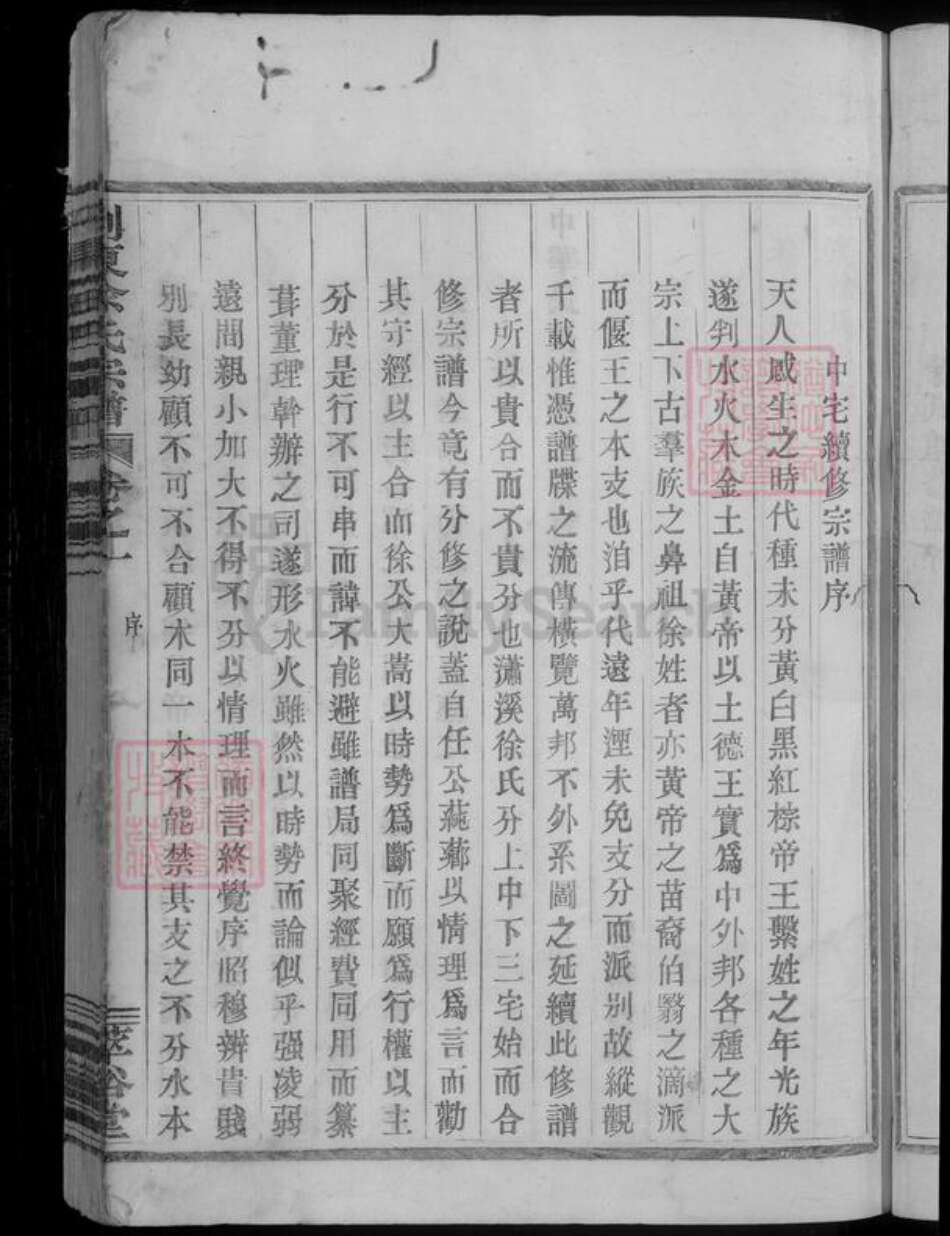 中宅續修宗譜序
天人感生之時代種未分黃白黑紅棕帝王繫姓之年光族
遂判水火木金土自黃帝以土德王實爲中外邦各種之大
宗上下古羣族之鼻祖徐姓者亦黃帝之苗裔伯翳之滴派
而偃王之本支也洎乎代遠年湮未免支分而派别故縱觀
千載惟憑譜牒之流傳橫覽萬邦不外系圖之延續此修譜
者所以貴合而不貴分也瀟溪徐氏分上中下三宅始而合
修宗譜今竟有分修之說蓋自任公蒓薌以情理爲言而勸
其守經以主合而徐公大嵩以時勢爲斷而願爲行權以主
分於是行不可串而諱不能避雖譜局同聚經費同用而纂
葺董理幹辦之司遂形水火雖然以時勢而論似乎强凌弱
遠間親小加大不得不分以情理而言終覺序昭穆辨貴賤
别長幼顧不可不合顧木同一本不能禁其支之不分水本
氏宗譜
卷之一
序
萃谷堂
FamilySearch